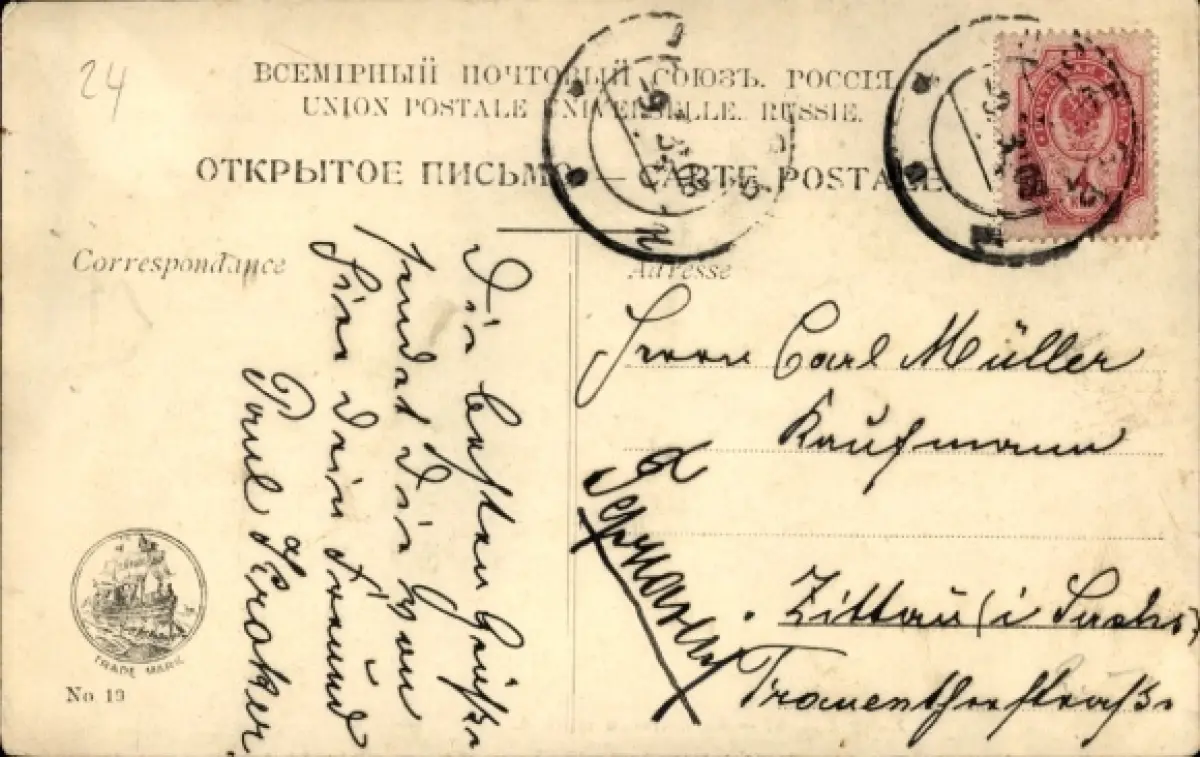 24
ВСЕМІРНЫЙ ПОЧТОВЫЙ СОЮЗЪ. РОССІЯ.
UNION POSTALE UNIVERSELLE. RUSSIE.
ОТКРЫТОЕ ПИСЬМО — CARTE POSTALE
Correspondance
Die besten Grüße
sendet Dir von
hier dein Freund
Paul
TRADE MARK
No 19
Adresse
Herrn Carl Müller
Kaufmann
Zittau (i Sachs.